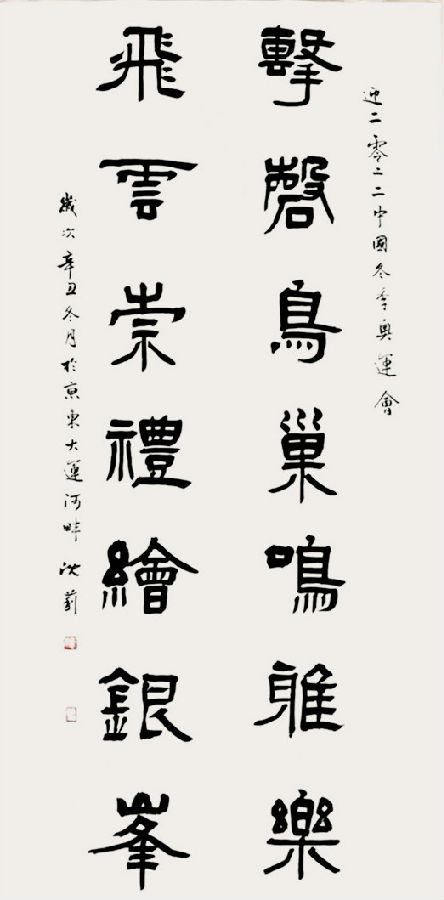 迎二零二二中國冬季奧運會
擊磬鳥巢鳴雅樂
飛雲崇禮繪銀峯
歲次辛丑冬月於京東大運河畔